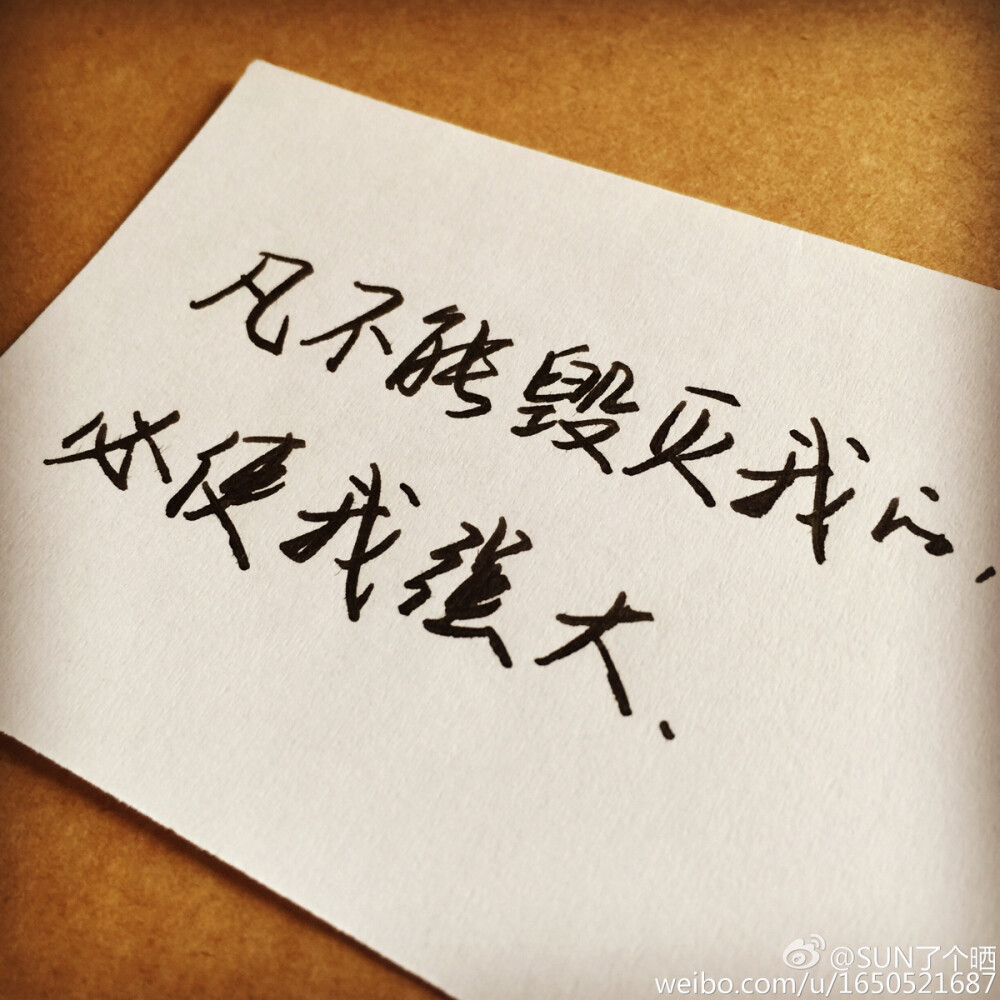 凡不能毁灭我的,
必使我强大.
@SUN了个晒
weibo.com/u/1650521687